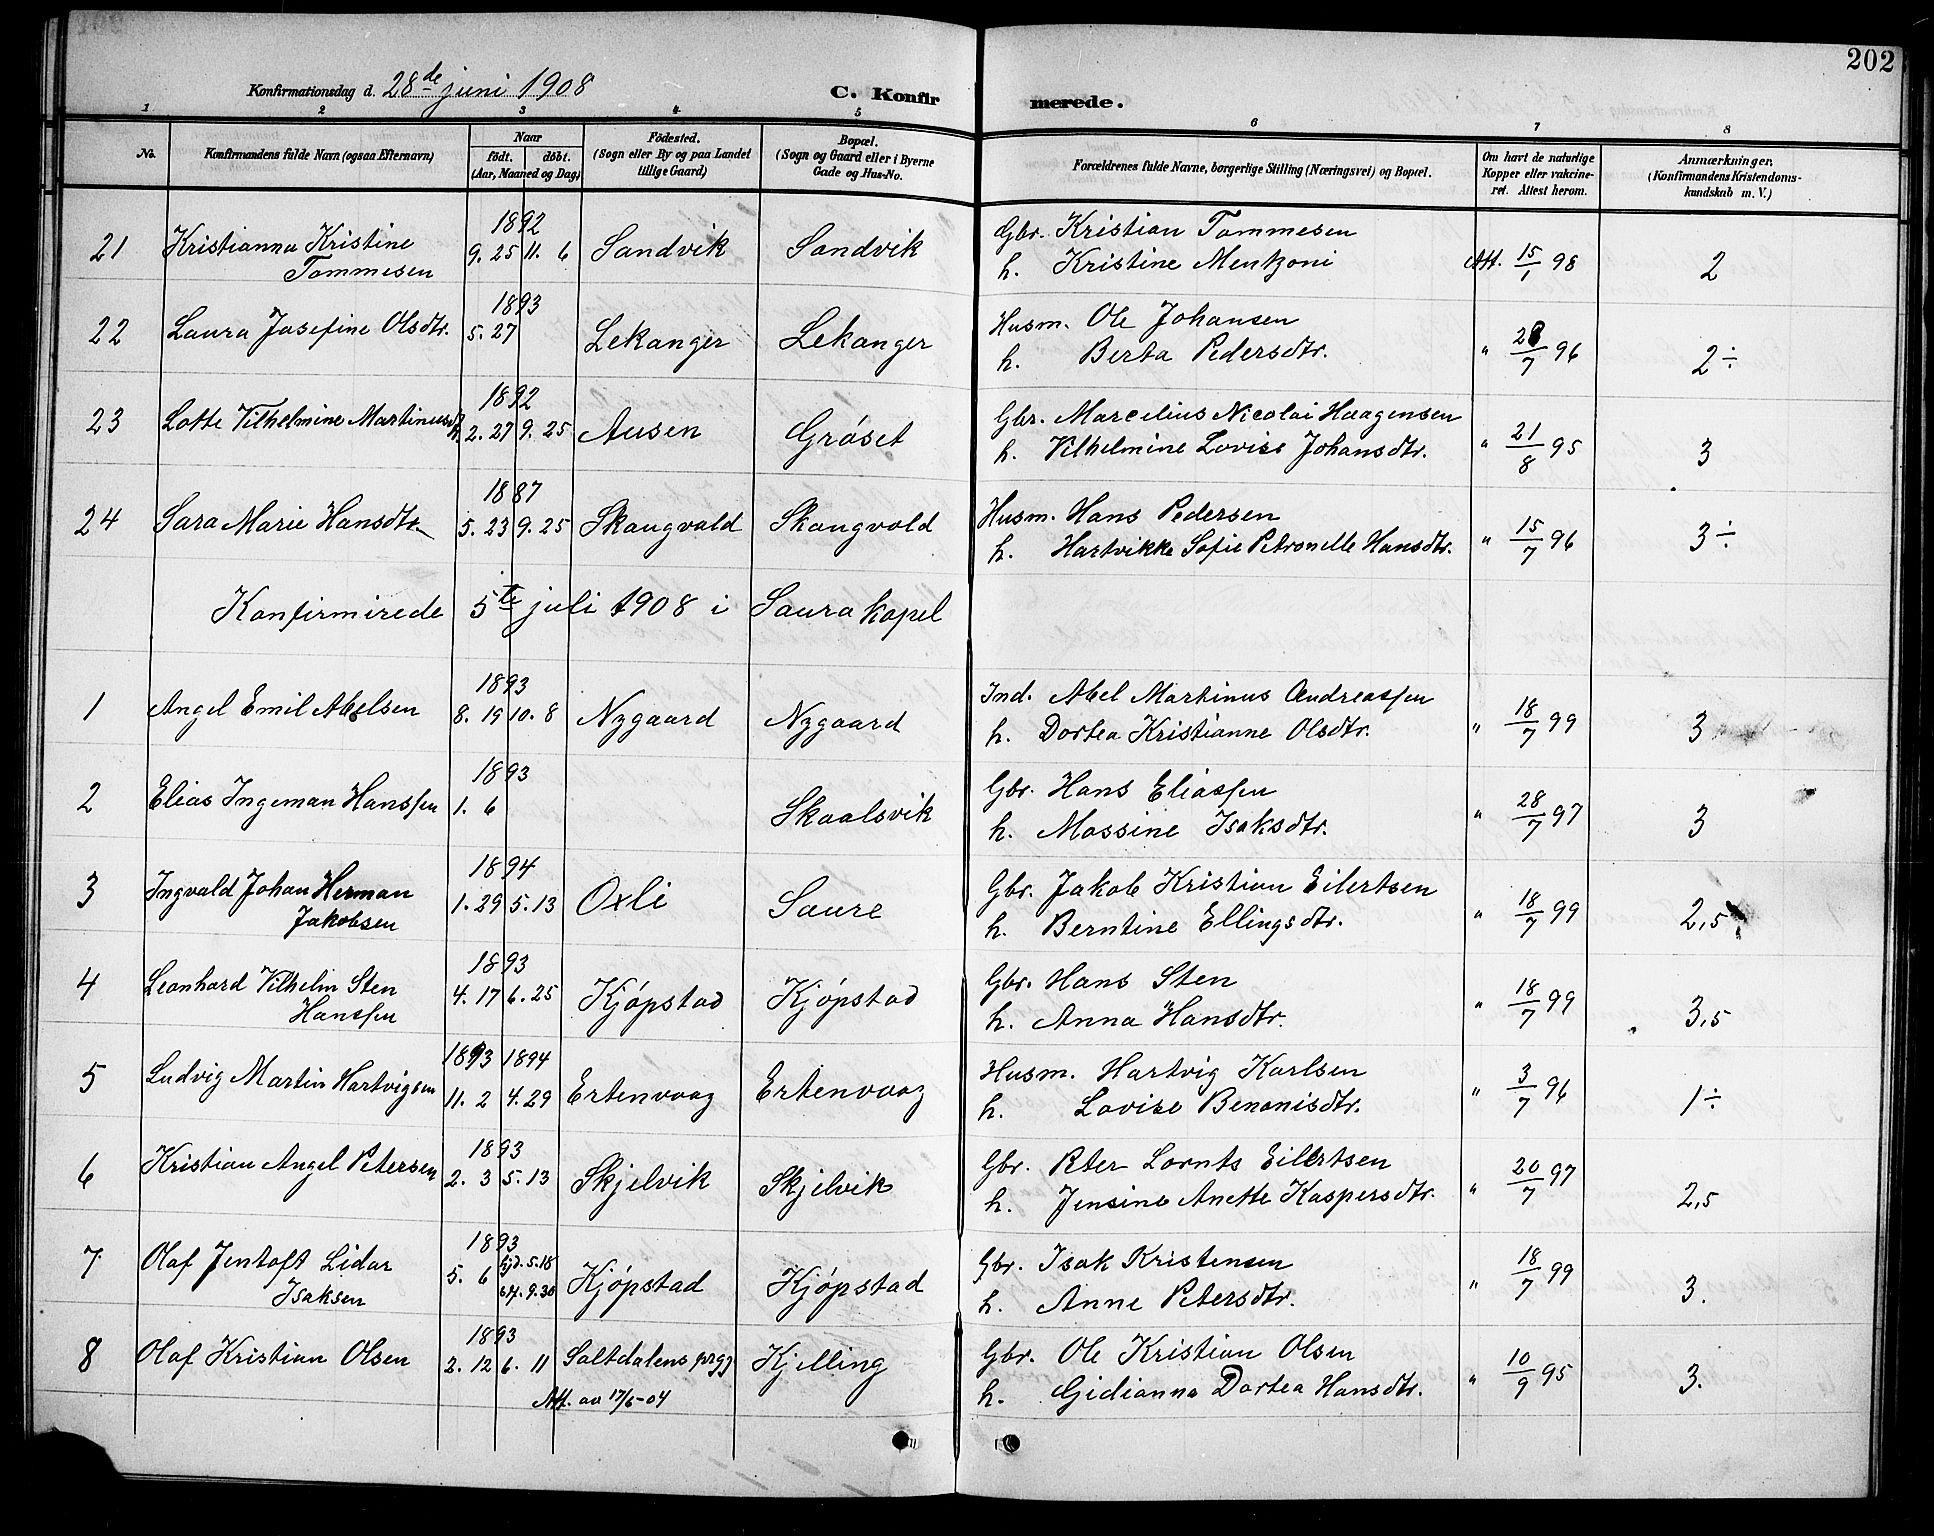 202
Konfirmationsdag d. 28de juni 1908 C. Konfirmerede.
1 2 3 4 5 6 7 8
No.
Konfirmandens fulde Navn (ogsaa Efternavn)
Naar
født. døbt.
(Aar, Maaned og Dag)
Födested.
(Sogn eller By og paa Landet
tillige Gaard)
Bopæl.
(Sogn og Gaard eller i Byerne
Gade og Hus-No.
Forældrenes fulde Navne, borgerlige Stilling (Næringsvei) og Bopæl.
Om havt de naturlige
Kopper eller vakcine-
ret. Attest herom.
Anmærkninger.
(Konfirmandens Kristendoms-
kundskab m. V.)
1892 Gbr. Kristian Tommesen
21 Kristianna Kristine 9. 25 11. 6 Sandvik Sandvik Att. 15/1 98 2
Tommesen h. Kristine Mentzoni
1893 Husm. Ole Johansen
22 Laura Josefine Olsdtr. 5. 27 Lekanger Lekanger " 28/7 96 2 ÷
h. Berta Pedersdtr.
1892 Gbr. Marcelius Nicolai Haagensen
23 Lotte Vilhelmine Martinusd. 2. 27 9. 25 Ausen Grøset " 21/8 95 3
h. Vilhelmine Lovise Johansdtr.
1887 Husm. Hans Pedersen
24 Sara Marie Hansdtr. 5. 23 9. 25 Skaugvold Skaugvold " 15/7 96 3 ÷
h. Hartvikke Sofie Petronelle Hansdtr.
Konfirmirede 5te juli 1908 i Saura kapel
1893 Ind. Abel Martinus Andreassen
1 Angel Emil Abelsen 8. 19 10. 8 Nygaard Nygaard " 18/7 99 3
h. Dortea Kristianne Olsdtr.
1893 Gbr. Hans Eliassen
2 Elias Ingeman Hanssen 1. 6 Skaalsvik " 28/7 97 3
h. Massine Isaksdtr.
1894 Gbr. Jakob Kristian Eilertsen
3 Ingvald Johan Herman 1. 29 5. 13 Oxli Saure " 18/7 99 2,5
Jakobsen h. Berntine Ellingsdtr.
1893 Gbr. Hans Sten
4 Leonhard Vilhelm Sten 4. 17 6. 25 Kjøpstad Kjøpstad " 18/7 99 3,5
Hanssen h. Anna Hansdtr.
1893 1894 Husm. Hartvig Karlsen
5 Ludvig Martin Hartvigsen 11. 2 4. 29 Ertenvaag Ertenvaag " 3/7 96 1 ÷
h. Lovise Benonisdtr.
1893 Gbr. Peter Lornts Eilertsen
6 Kristian Angel Petersen 2. 3 5. 13 Skjelvik Skjelvik " 20/7 97 2,5
h. Jensine Anette Kaspersdtr.
1893 Gbr. Isak Kristensen
7. Olaf Jentoft Lidar 5. 6 hjd. 5. 18 Kjøpstad Kjøpstad " 18/7 99 3.
Isaksen 9. 30 h. Anne Petersdtr.
1893 Gbr. Ole Kristian Olsen
8 Olaf Kristian Olsen 2. 12 6. 11 Saltdalens prgj Kjelling " 10/9 95 3.
Att. av 17/6-04 h. Gidianna Dortea Hansdtr.